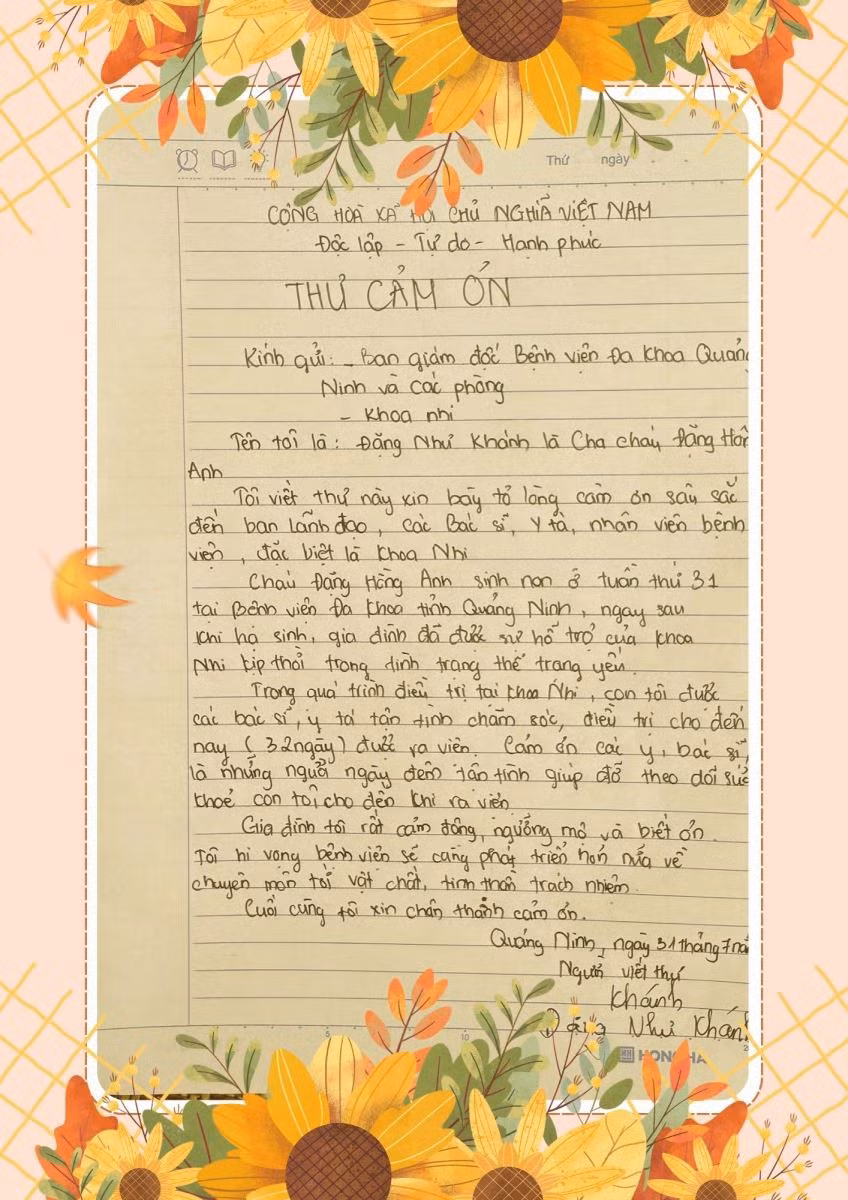 Thứ ngày
CỘNG HOÀ XÃ HỘI CHỦ NGHĨA VIỆT NAM
Độc lập - Tự do - Hạnh phúc
THƯ CẢM ƠN
Kính gửi: - Ban giám đốc Bệnh viện Đa khoa Quảng
Ninh và các phòng
- Khoa nhi
Tên tôi là: Đặng Như Khánh là Cha cháu Đặng Hồn
Anh
Tôi viết thư này xin bày tỏ lòng cảm ơn sâu sắc
đến ban lãnh đạo, các Bác sĩ, Y tá, nhân viên bệnh
viện, đặc biệt là khoa Nhi
Cháu Đặng Hồng Anh sinh non ở tuần thứ 31
tại Bệnh viện Đa khoa tỉnh Quảng Ninh, ngay sau
khi hạ sinh, gia đình đã được sự hỗ trợ của khoa
Nhi kịp thời trong tình trạng thể trạng yếu.
Trong quá trình điều trị tại khoa Nhi, con tôi được
các bác sĩ, y tá tận tình chăm sóc, điều trị cho đến
nay (32 ngày) được ra viện. Cảm ơn các y, bác sĩ,
là những người ngày đêm tận tình giúp đỡ theo dõi sức
khoẻ con tôi cho đến khi ra viện
Gia đình tôi rất cảm động, ngưỡng mộ và biết ơn.
Tôi hi vọng bệnh viện sẽ càng phát triển hơn nữa về
chuyên môn tới vật chất, tinh thần trách nhiệm.
Cuối cùng tôi xin chân thành cảm ơn.
Quảng Ninh, ngày 31 tháng 7 nă
Người viết thư
Khánh
Đặng Như Khánh
HONG HA